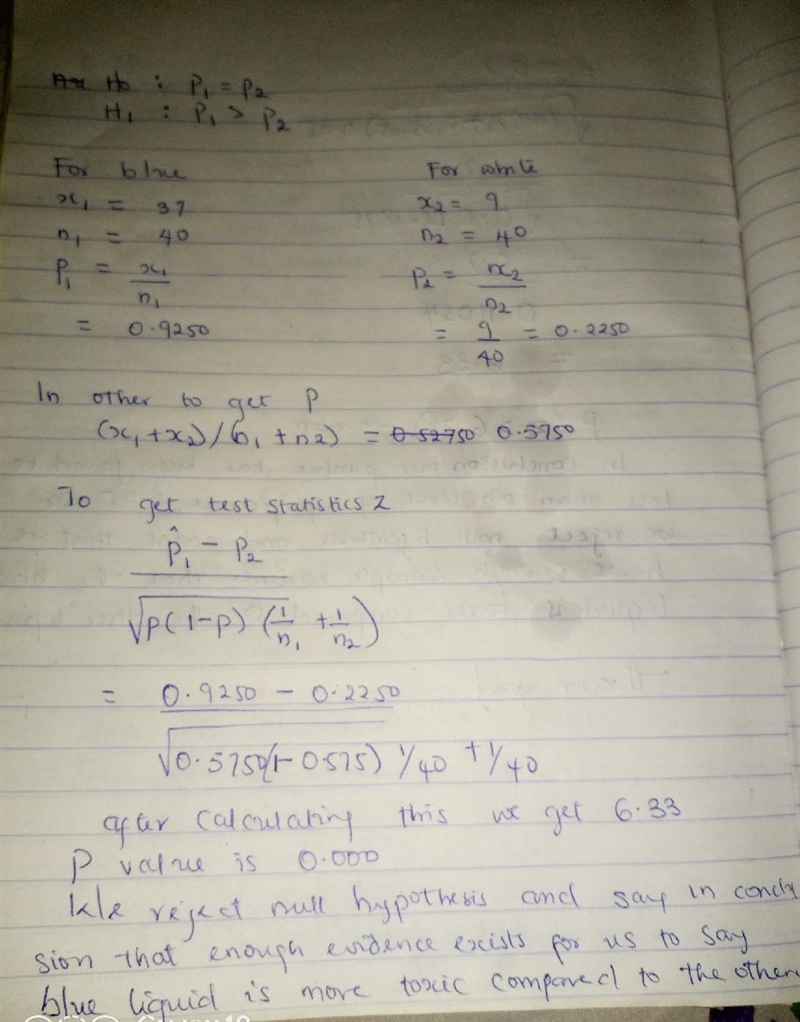 H0 : P1 = P2
H1 : P1 > P2
For blue
For white
x1 = 37
x2 = 9
n1 = 40
n2 = 40
P1 = x1/n1
P2 = x2/n2
= 0.9250
= 9/40 = 0.2250
In other to get P
(x1+x2)/(n1+n2) = 0.52750 0.5750
To get test statistics Z
p̂1 - P2
√p(1-p)(1/n1 + 1/n2)
= 0.9250 - 0.2250
√0.5750(1-0.575) 1/40 + 1/40
after calculating this we get 6.33
P value is 0.000
We reject null hypothesis and say in conclu
sion that enough evidence exists for us to say
blue liquid is more toxic compared to the other